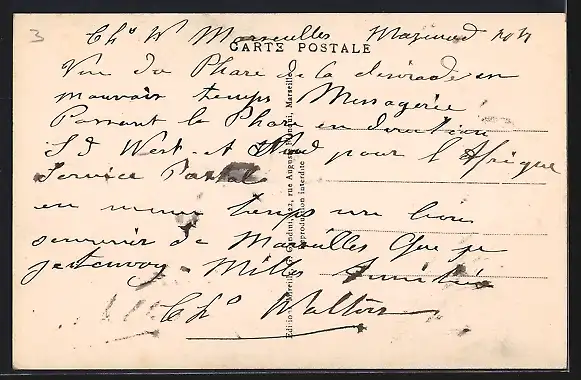 3
Cho W Marseilles
CARTE POSTALE
Vue du Phare de la desirade en
mauvais temps Messagerie
Passant le Phare en direction
Sd West et Sud pour l'Afrique
Service Postale
en meme temps un bon
souvenir de Marseilles Que je
jestenvoy - Milles Amitiés
Cho Walton
Editions Mireille, 22, rue Auguste Blanqui, Marseille
Reproduction interdite